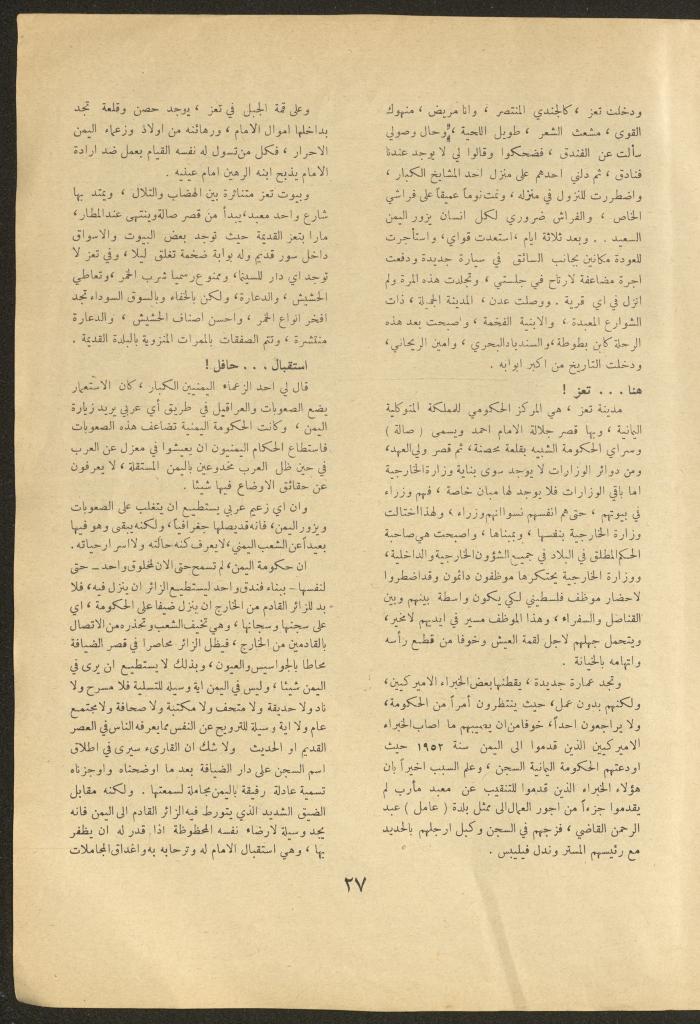 ودخلت تعز ، كالجندي المنتصر ، وانا مريض ، منهوك
القوى ، مشعث الشعر ، طويل اللحية ، وحال وصولي
سألت عن الفندق ، فضحكوا وقالوا لي لا يوجد عندنا
فنادق ، ثم دلني احدهم على منزل احد المشايخ الكبار ،
واضطررت للنزول في منزله ، ونمت نوماً عميقاً على فراشي
الخاص ، والفراش ضروري لكل انسان يزور اليمن
السعيد . . وبعد ثلاثة ايام ، استعدت قواي ، واستأجرت
للعودة مكانين بجانب السائق في سيارة جديدة ودفعت
اجرة مضاعفة لارتاح في جلستي ، وتجلدت هذه المرة ولم
انزل في اي قرية . ووصلت عدن ، المدينة الجميلة ، ذات
الشوارع المعبدة ، والابنية الفخمة ، واصبحت بعد هذه
الرحلة كابن بطوطة ، والسندباد البحري ، وامين الريحاني ،
ودخلت التاريخ من اكبر ابوابه .
هنا . . . تعز !
مدينة تعز ، هي المركز الحكومي للمملكة المتوكلية
اليمانية ، وبها قصر جلالة الامام احمد ويسمى ( صالة )
وسراي الحكومة الشبيه بقلعة محصنة ، ثم قصر ولي العهد ،
ومن دوائر الوزارات لا يوجد سوى بناية وزارة الخارجية
اما باقي الوزارات فلا يوجد لها مبان خاصة ، فهم وزراء
في بيوتهم ، حتى هم انفسهم نسوا انهم وزراء ، ولهذا اختالت
وزارة الخارجية بنفسها ، وبمبناها ، واصبحت هي صاحبة
الحكم المطلق في البلاد في جميع الشؤون الخارجية والداخلية ،
ووزارة الخارجية يحتكرها موظفون دائمون وقد اضطروا
لاحضار موظف فلسطيني لكي يكون واسطة بينهم وبين
القناصل والسفراء ، وهذا الموظف مسير في ايديهم لا مخير ،
ويتحمل جهلهم لاجل لقمة العيش وخوفا من قطع رأسه
واتهامه بالخيانة .
وتجد عمارة جديدة ، يقطنها بعض الخبراء الاميركيين ،
ولكنهم بدون عمل ، حيث ينتظرون أمراً من الحكومة ،
ولا يراجعون احداً ، خوفا من ان يصيبهم ما اصاب الخبراء
الاميركيين الذين قدموا الى اليمن سنة ١٩٥٢ حيث
اودعتهم الحكومة اليمانية السجن ، وعلم السبب اخيراً بان
هؤلاء الخبراء الذين قدموا للتنقيب عن معبد مأرب لم
يقدموا جزءاً من اجور العمال الى ممثل بلدة ( عامل ) عبد
الرحمن القاضي ، فزجهم في السجن وكبل ارجلهم بالحديد
مع رئيسهم المستر وندل فيليبس .
وعلى قمة الجبل في تعز ، يوجد حصن وقلعة تجد
بداخلها اموال الامام ، ورهائنه من اولاد وزعماء اليمن
الاحرار ، فكل من تسول له نفسه القيام بعمل ضد ارادة
الامام يذبح ابنه الرهين امام عينيه .
وبيوت تعز متناثرة بين الهضاب والتلال ، ويمتد بها
شارع واحد معبد ، يبدأ من قصر صالة وينتهى عند المطار ،
مارا بتعز القديمة حيث توجد بعض البيوت والاسواق
داخل سور قديم وله بوابة ضخمة تغلق ليلا ، وفي تعز لا
توجد اي دار للسينما ، وممنوع رسميا شرب الخمر ، وتعاطي
الحشيش ، والدعارة ، ولكن بالخفاء وبالسوق السوداء تجد
افخر انواع الخمر ، واحسن اصناف الحشيش ، والدعارة
منتشرة ، وتتم الصفقات بالممرات المنزوية بالبلدة القديمة .
استقبال . . . حافل !
قال لي احد الزعماء اليمنيين الكبار ، كان الاستعمار
يضع الصعوبات والعراقيل في طريق أي عربي يريد زيارة
اليمن ، وكانت الحكومة اليمنية تضاعف هذه الصعوبات
فاستطاع الحكام اليمنيون ان يعيشوا في معزل عن العرب
في حين ظل العرب مخدوعين باليمن المستقلة ، لا يعرفون
عن حقائق الاوضاع فيها شيئا .
وان اي زعيم عربي يستطيع ان يتغلب على الصعوبات
ويزور اليمن ، فانه قد يصلها جغرافياً ، ولكنه يبقى وهو فيها
بعيداً عن الشعب اليمني ، لا يعرف كنه حالته ولا اسرار حياته .
ان حكومة اليمن ، لم تسمح حتى الان لمخلوق واحد ــ حتى
لنفسها ــ ببناء فندق واحد ليستطيع الزائر ان ينزل فيه ، فلا
بد للزائر القادم من الخارج ان ينزل ضيفا على الحكومة ، اي
على سجنها وسجانها ، وهي تخيف الشعب وتحذره من الاتصال
بالقادمين من الخارج ، فيظل الزائر محاصرا في قصر الضيافة
محاطا بالجواسيس والعيون ، وبذلك لا يستطيع ان يرى في
اليمن شيئا ، وليس في اليمن اية وسيلة للتسلية فلا مسرح ولا
ناد ولا حديقة ولا متحف ولا مكتبة ولا صحافة ولا مجتمع
عام ولا اية وسيلة للترويح عن النفس مما يعرفه الناس في العصر
القديم او الحديث ولا شك ان القارىء سيرى في اطلاق
اسم السجن على دار الضيافة بعد ما اوضحناه واوجزناه
تسمية عادلة رفيقة باليمن مجاملة لسمعتها . ولكنه مقابل
الضيق الشديد الذي يتورط فيه الزائر القادم الى اليمن فانه
يجد وسيلة لارضاء نفسه المحظوظة اذا قدر له ان يظفر
بها ، وهي استقبال الامام له وترحابه به واغداق المجاملات
٢٧